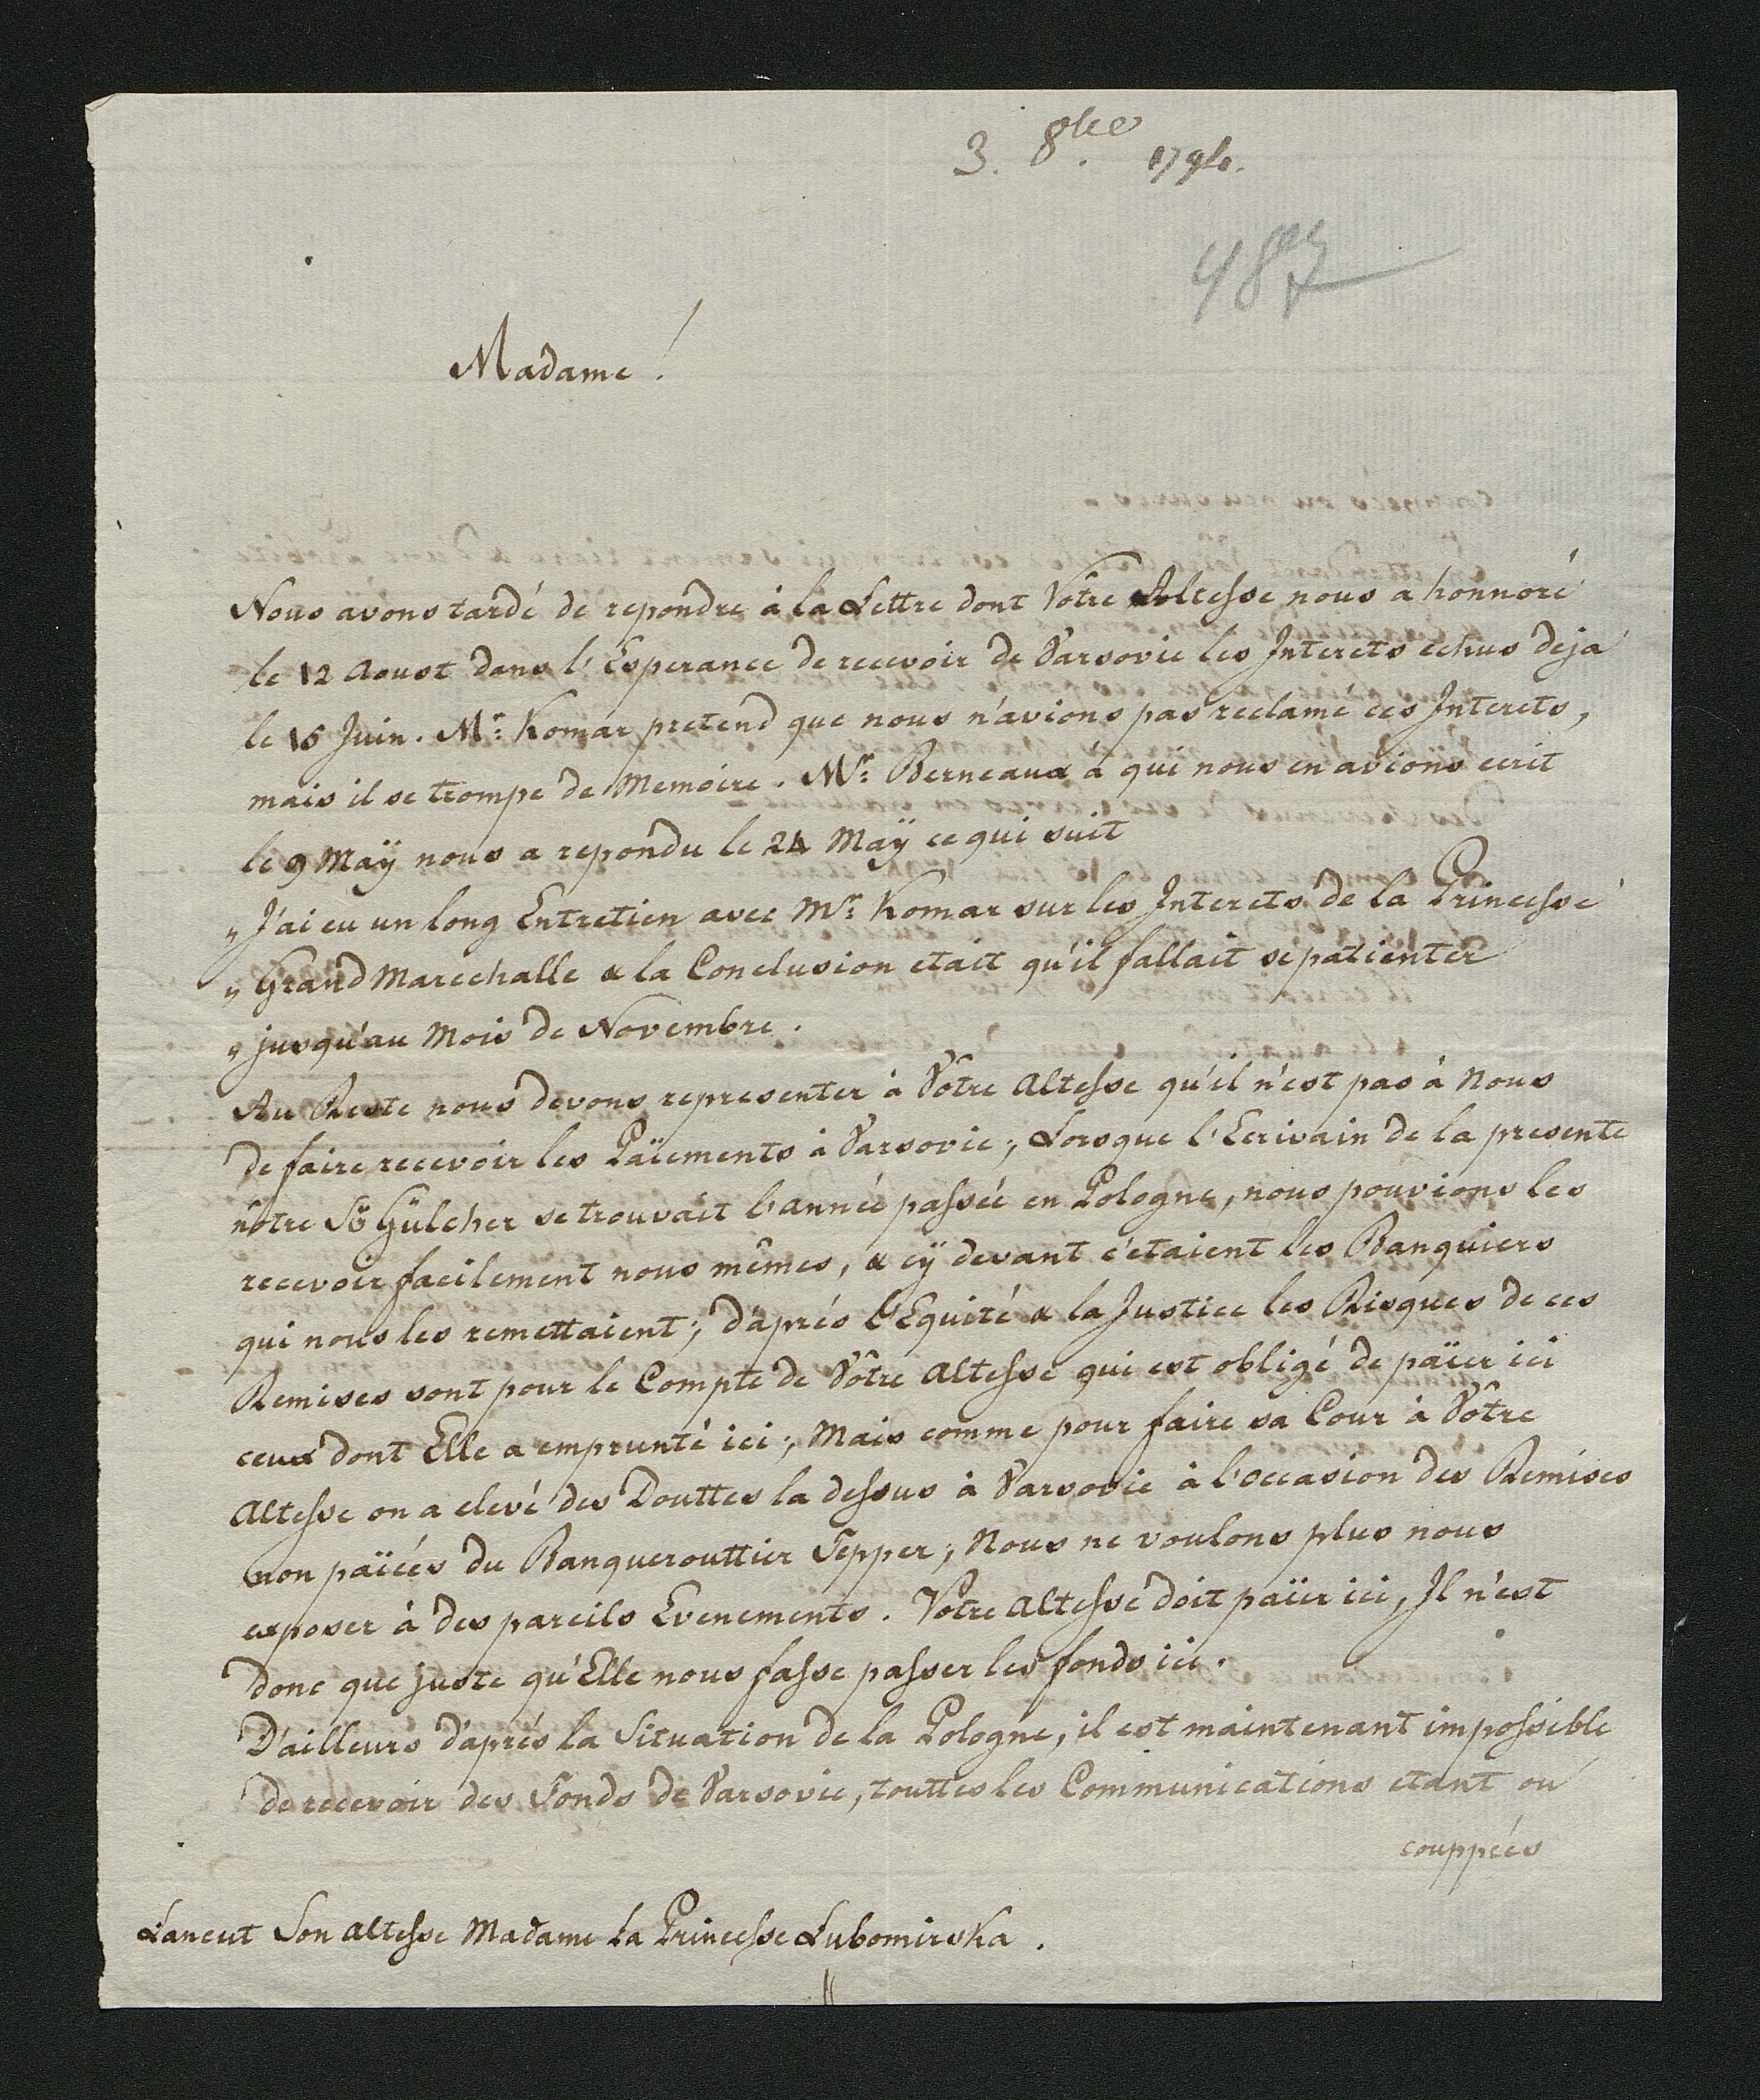 3. 8bre 1794.
Madame!
Nous avons tardé de repondre à la Lettre dont Votre Altesse nous a honnoré
le 12 Aoust dans l'Esperance de recevoir de Varsovie les Interets echus deja
le 15 Juin. Mr: Komar pretend que nous n'avions pas reclamé ces Interets,
mais il se trompe de Memoire. Mr: Berneaux à qui nous en avions ecrit
le 9 Maÿ nous a repondu le 24 Maÿ ce qui suit
„J'ai eu un long Entretien avec Mr: Komar sur les Interets de la Princesse
„Grand Marechalle & la Conclusion etait qu'il fallait se patienter
„jusqu'au Mois de Novembre.
Au Reste nous devons representer à Vôtre Altesse qu'il n'est pas à Nous
de faire recevoir les Païements à Varsovie; Lorsque l'Ecrivain de la presente
nôtre Sr Gülcher se trouvait l'année passée en Pologne, nous pouvions les
recevoir facilement nous mêmes, & cÿ devant c'etaient les Banquiers
qui nous les remettaient; D'aprés l'Equité & la Justice les Risques de ces
Remises sont pour le Compte de Vôtre Altesse qui est obligé de païer ici
ceux dont Elle a emprunté ici; Mais comme pour faire sa Cour à Vôtre
Altesse on a elevé des Douttes la dessus à Varsovie à l'occasion des Remises
non païées du Banquerouttier Tepper; Nous ne voulons plus nous
exposer à des pareils Evenements. Votre Altesse doit païer ici, Il n'est
donc que juste qu'Elle nous fasse passer les fonds ici.
D'ailleurs d'aprés la Situation de la Pologne, il est maintenant impossible
de recevoir des Fonds de Varsovie, touttes les Communications etant ou
couppées
Lancut Son Altesse Madame La Princesse Lubomirska.